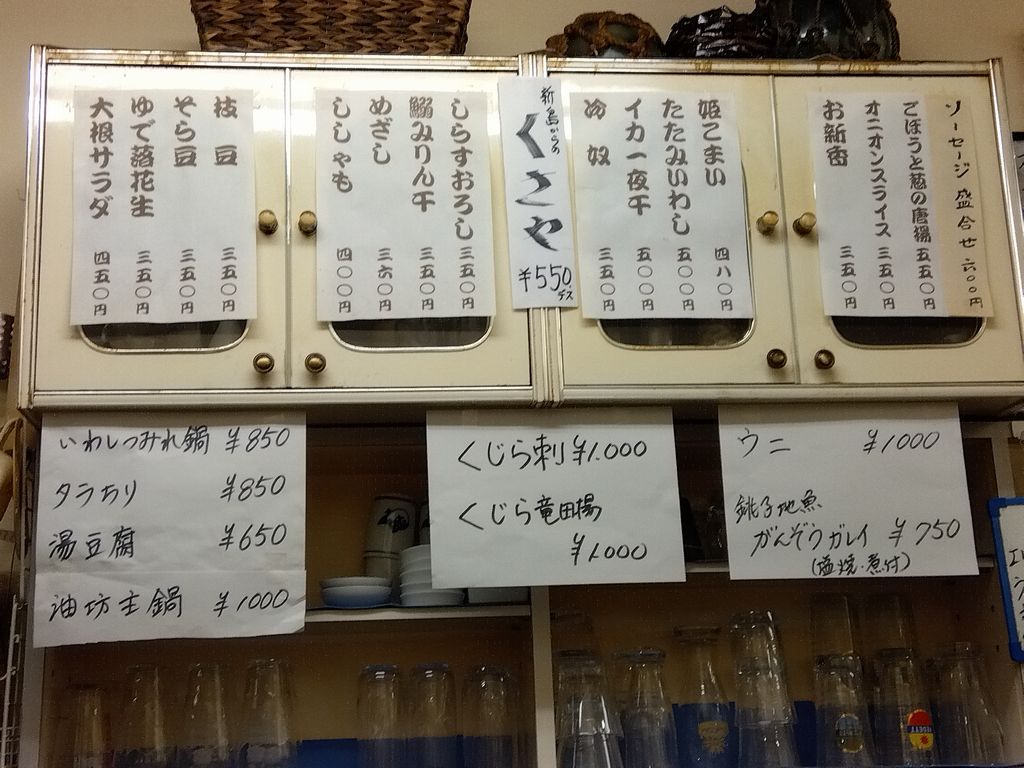 ソーセージ盛合せ 六〇〇円
ごぼうと葱の唐揚 五五〇円
オニオンスライス 三五〇円
お新香 三五〇円
姫こまい 四八〇円
たたみいわし 五〇〇円
イカ一夜干 五〇〇円
冷奴 三五〇円
新島からの
くさや
¥550デス
しらすおろし 三五〇円
鰯みりん干 三五〇円
めざし 三六〇円
ししゃも 四〇〇円
枝豆 三五〇円
そら豆 三五〇円
ゆで落花生 三五〇円
大根サラダ 四五〇円
いわしつみれ鍋 ¥850
タラちり ¥850
湯豆腐 ¥650
油坊主鍋 ¥1000
くじら刺 ¥1.000
くじら竜田揚
¥1.000
ウニ ¥1000
銚子地魚
がんぞうガレイ ¥750
(塩焼・煮付)